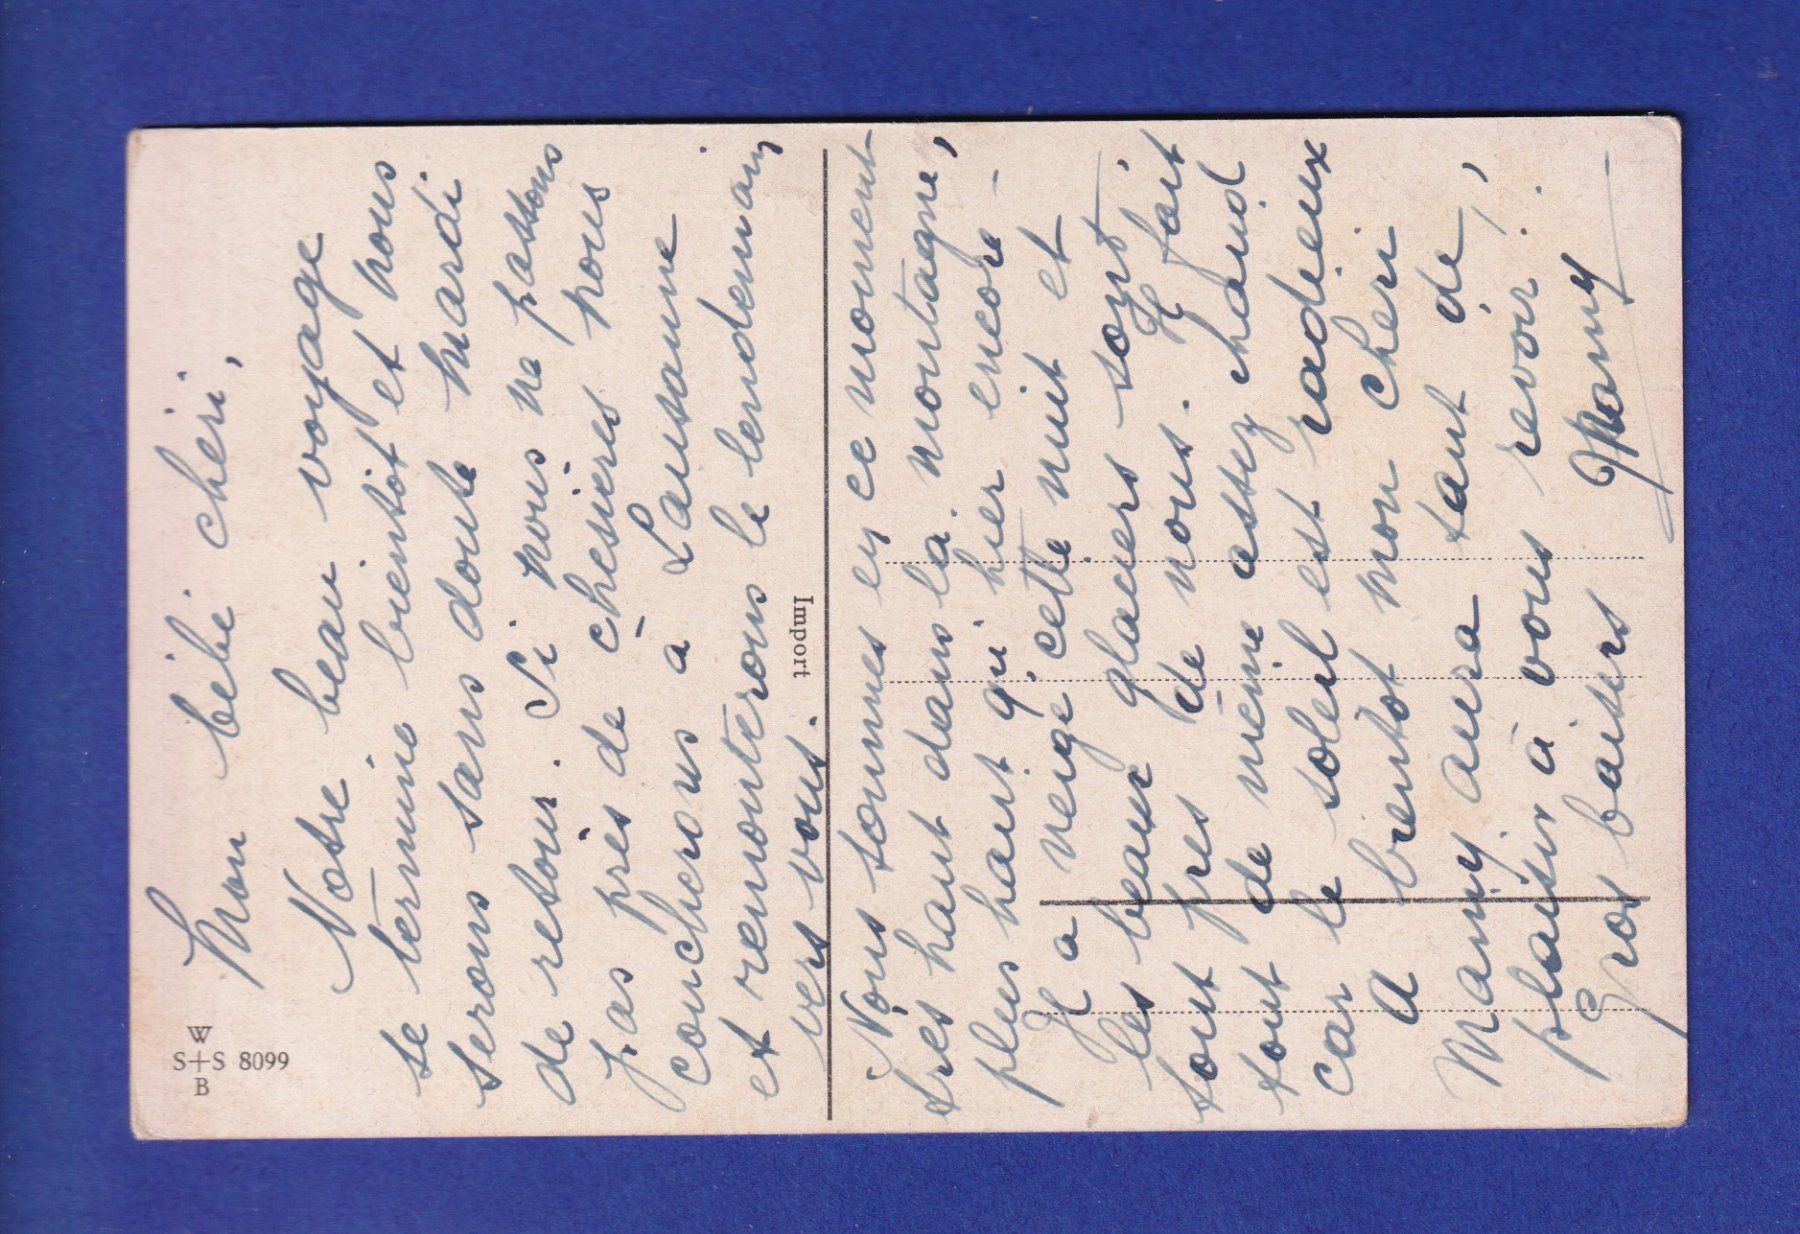 Mon bébé chéri,
Notre beau voyage
se termine bientôt et nous
serons sans doute mardi
de retour. Si nous ne passons
pas près de chesières nous
coucherons à Lausanne
et remonterons le lendemain
vers vous.
Nous sommes en ce moment
très haut dans la montagne,
plus haut qu'hier encore -
Il a neigé cette nuit et
les beaux glaciers sont
tout près de nous. Il fait
tout de même assez chaud
car le soleil est radieux
A bientôt mon chéri
Mamy aura tant de
plaisir à vous revoir!
Gros baisers Mamy
Import
W
S+S 8099
B